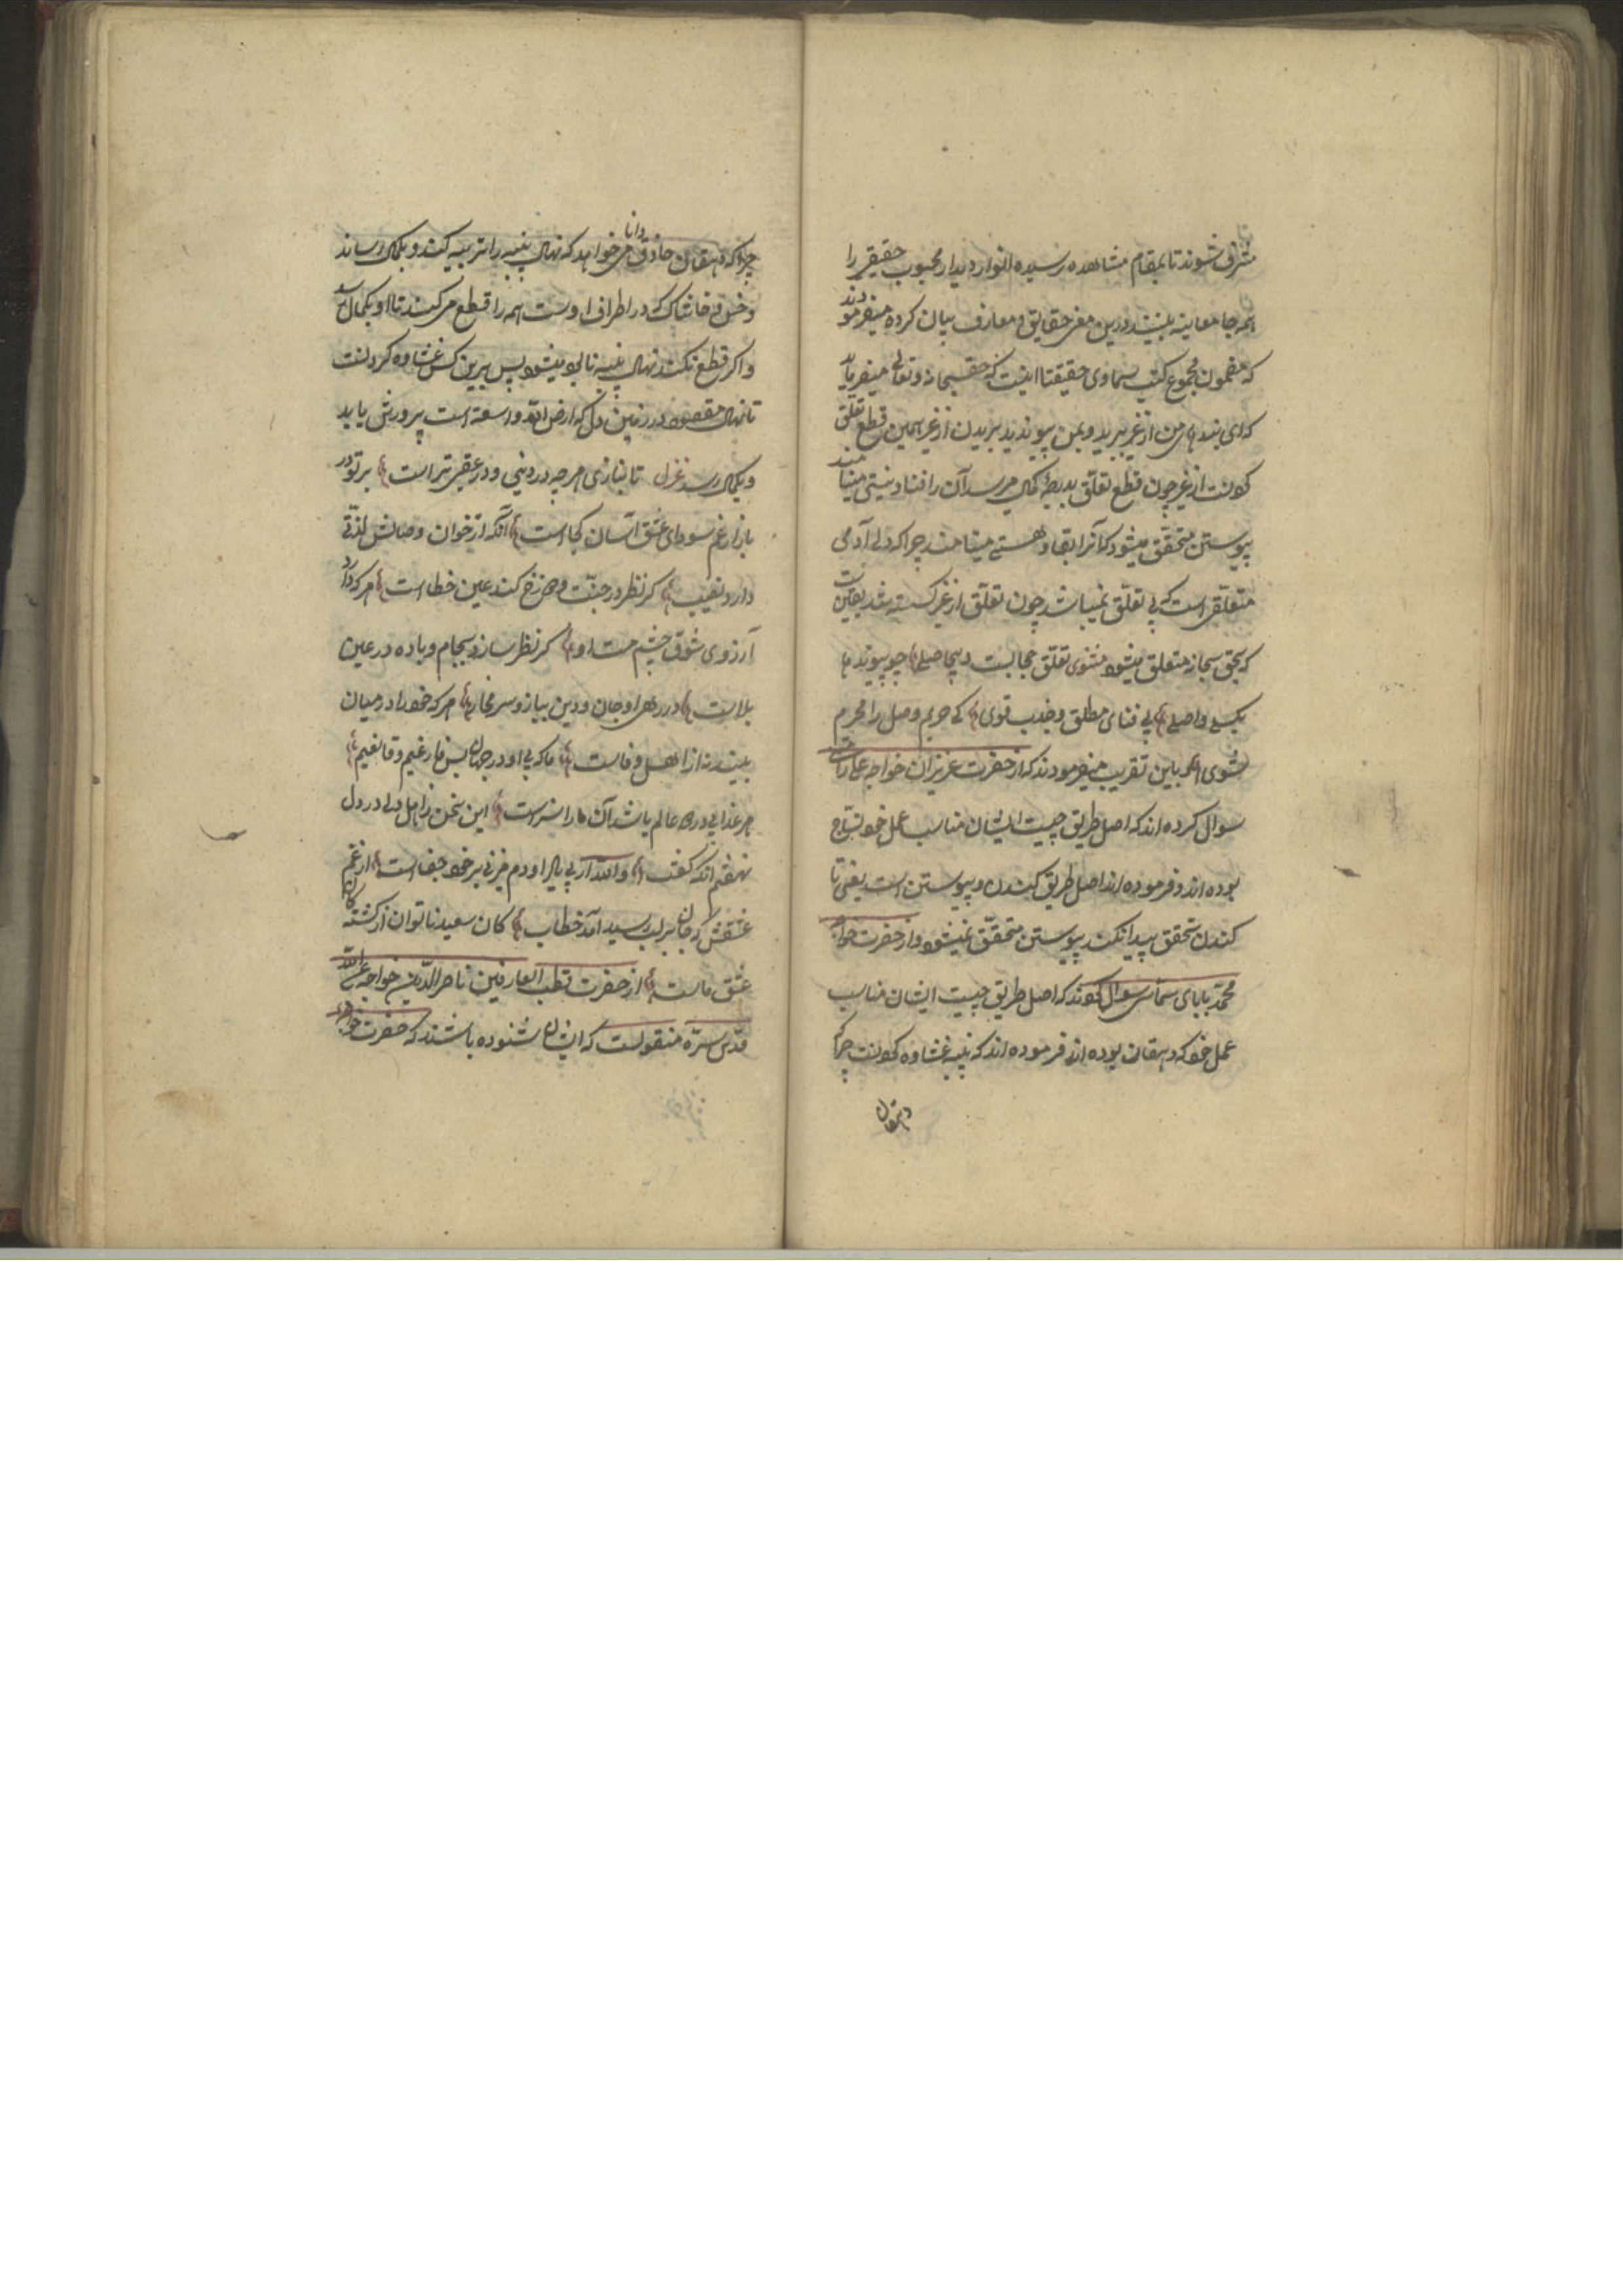 مشرف شوند تا بمقام مشاهده رسیده انوار دیدار محبوب حقیقی را
همه جا معاینه بینند درین معنی حقایق و معارف بیان کرده میفرمودند
که مضمون مجموع کتب سماوی حقیقتا اینست که حق سبحانه و تعالی میفرماید
که ای بنده من از غیر ببرید و بمن پیوندید بریدن از غیر همین قطع تعلق
کردنست از غیر چون قطع تعلق بدرجه کمال میرسد آن را فنا و نیستی مینامند
پیوستن متحقق میشود که آنرا بقا و هستی مینامند چرا که دل آدمی
متعلقی است که بی تعلق نمیباشد چون تعلق از غیر گسسته شد بیقین
که بحق سبحانه متعلق میشود مثنوی تعلق حجابست و بیحاصلی چو پیوندها
بگسلی واصلی بی فنای مطلق و جذب قوی کی حریم وصل را محرم
شوی هم باین تقریب میفرمودند که از حضرت عزیزان خواجه علی رامتنی
سوال کرده اند که اصل طریق چیست ایشان مناسب عمل خود نساج
بوده اند و فرموده اند اصل طریق کندن و پیوستن است یعنی تا
کندن تحقق پیدا نکند پیوستن متحقق نمیشود و از حضرت خواجه
محمد بابای سماسی سوال کردند که اصل طریق چیست ایشان مناسب
عمل خود که دهقان بوده اند فرموده اند که پنبه غشاوه کردنست چرا که
دهقان
چرا که دهقان حاذق دانا می خواهد که نهال پنبه را تربیه کند و بکمال رساند
و خس و خاشاک که در اطراف اوست همه را قطع می کند تا او بکمال رسد
و اگر قطع نکند نهال پنبه نابود میشود پس برین کس غشاوه کردنست
تا نهال مقصود در زمین دل که ارض الله واسعة است پرورش یابد
و بکمال رسد غزل تا نبازی هر چه در دنیی و در عقبی تراست بر تو در
بازار غم سودای عشق آسان کجاست آنکه از خوان وصالش لذتی
دارد نصیب گر نظر در جنت و دوزخ کند عین خطاست هر که دارد
آرزوی شوق چشم مست او گر نظر سازد بجام و باده در عین
بلاست در ره او جان و دین بباز و سر مخار هر که خود را در میان
بیند نه از اهل وفاست ما که بی او در جهان بس فارغیم و قانعیم
هر غذایی در عالم باشد آن ما را سزاست این سخن ز اهل دلی در دل
نهفتم آنکه گفت والله ار بی یار او دم میزنی بر خود جفاست از غم
عشقش که جان بر لب رسید آمد خطاب کان سعید ناتوان از کشتگان
عشق ماست از حضرت قطب العارفین ناصرالدین خواجه عبیدالله
قدس سره منقولست که ایشان شنوده باشند که حضرت خواجه